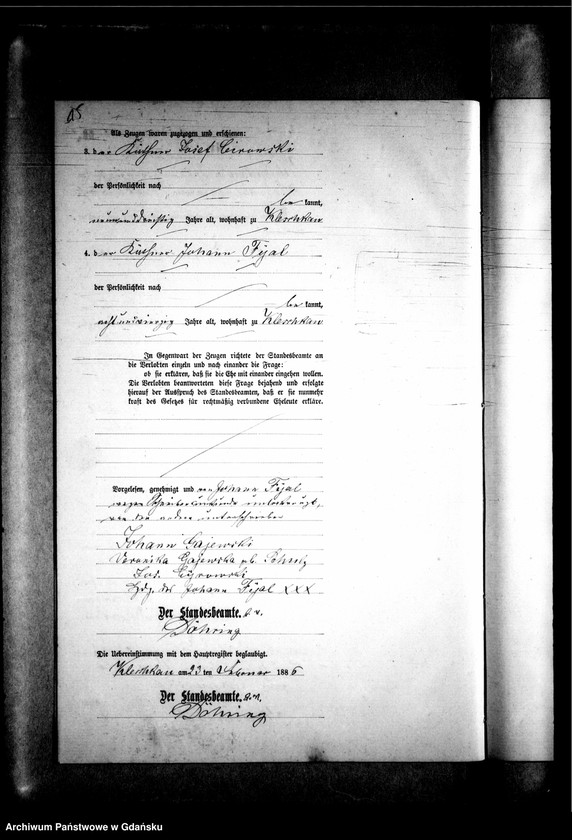 Als Zeugen waren zugezogen und erschienen:
3. der Käthner Josef Cirowski
der Persönlichkeit nach
be kannt,
neununddreißig Jahre alt, wohnhaft zu Kleschkau
4. der Käthner Johann Fijal
der Persönlichkeit nach
be kannt,
achtundvierzig Jahre alt, wohnhaft zu Kleschkau
In Gegenwart der Zeugen richtete der Standesbeamte an
die Verlobten einzeln und nach einander die Frage:
ob sie erklären, daß sie die Ehe mit einander eingehen wollen.
Die Verlobten beantworteten diese Frage bejahend und erfolgte
hierauf der Ausspruch des Standesbeamten, daß er sie nunmehr
kraft des Gesetzes für rechtmäßig verbundene Eheleute erkläre.
Vorgelesen, genehmigt und von Johann Fijal
wegen Schreibensunkunde unterkreuzt,
von den andern unterschrieben
Johann Gajewski
Veronika Gajewska geb. Schulz
Jos. Cyrowski
Hdz. des Johann Fijal XXX
Der Standesbeamte. i. V.
Döhring
Die Uebereinstimmung mit dem Hauptregister beglaubigt.
Kleschkau am 23 ten Februar 1886
Der Standesbeamte. i. V.
Döhring
Archiwum Państwowe w Gdańsku